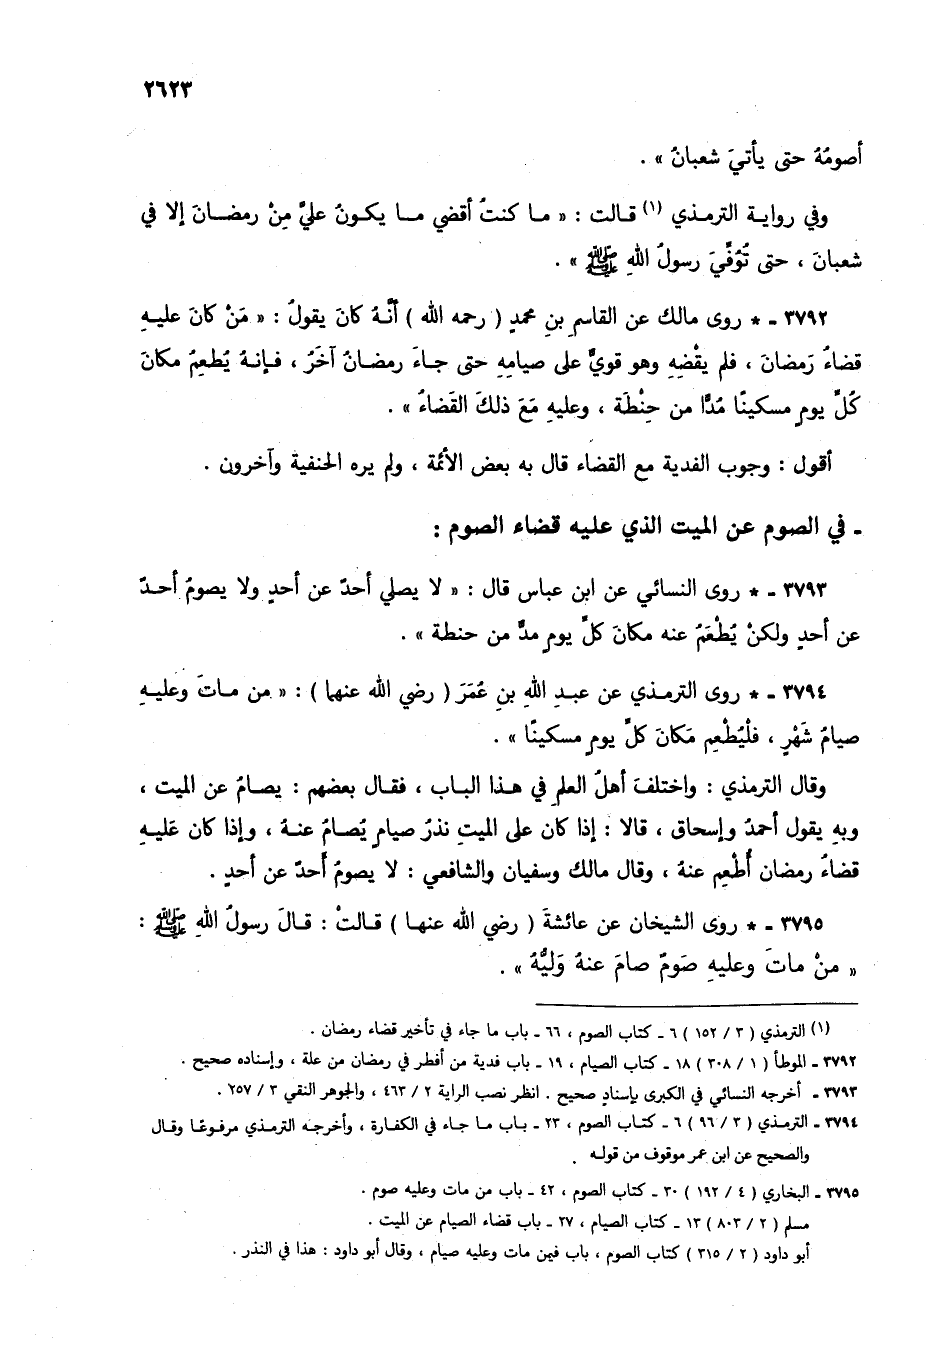 ٢٦٢٣
أصومُهُ حتى يأتيَ شعبانُ » .
وفي رواية الترمذي (١) قالت : « ما كنتُ أقضي ما يكونُ عليَّ مِنْ رمضانَ إلا في
شعبانَ ، حتى تُوُفِّيَ رسولُ اللهِ ﷺ » .
٣٧٩٢ ـ * روى مالك عن القاسمِ بنِ محمدٍ ( رحمه الله ) أنَّهُ كانَ يقولُ : « مَنْ كانَ عليهِ
قضاءُ رَمضانَ ، فلم يقْضِهِ وهو قويٌّ على صيامِهِ حتى جاءَ رمضانُ آخَرُ ، فإنهُ يُطعِمُ مكانَ
كُلِّ يومٍ مسكينًا مُدًّا من حِنْطَة ، وعليهِ مَعَ ذلكَ القَضاءُ » .
أقول : وجوب الفدية مع القضاء قال به بعض الأئمة ، ولم يره الحنفية وآخرون .
ـ في الصوم عن الميت الذي عليه قضاء الصوم :
٣٧٩٣ ـ * روى النسائي عن ابن عباس قال : « لا يصلي أحدٌ عن أحدٍ ولا يصومُ أحدٌ
عن أحدٍ ولكنْ يُطْعَمُ عنه مكانَ كلِّ يومٍ مدٌّ من حنطة » .
٣٧٩٤ ـ * روى الترمذي عن عبدِ اللهِ بنِ عُمَرَ ( رضي الله عنهما ) : « من ماتَ وعليهِ
صيامُ شَهْرٍ ، فلْيُطْعِم مَكانَ كلِّ يومٍ مسكينًا » .
وقال الترمذي : واختلفَ أهلُ العلمِ في هذا البابِ ، فقال بعضهم : يصامُ عن الميت ،
وبهِ يقول أحمدُ وإسحاق ، قالا : إذا كان على الميتِ نذرُ صيامٍ يُصامُ عنهُ ، وإذا كان عَليهِ
قضاءُ رمضان أُطْعِم عنهُ ، وقال مالك وسفيان والشافعي : لا يصومُ أحدٌ عن أحدٍ .
٣٧٩٥ ـ * روى الشيخان عن عائشةَ ( رضي الله عنها ) قالتْ : قالَ رسولُ اللهِ ﷺ :
« منْ ماتَ وعليهِ صَومٌ صامَ عنهُ وَليُّهُ » .
(١) الترمذي ( ٣ / ١٥٢ ) ٦ ـ كتاب الصوم ، ٦٦ ـ باب ما جاء في تأخير قضاء رمضان .
٣٧٩٢ ـ الموطأ ( ١ / ٣٠٨ ) ١٨ ـ كتاب الصيام ، ١٩ ـ باب فدية من أفطر في رمضان من علة ، وإسناده صحيح .
٣٧٩٣ ـ أخرجه النسائي في الكبرى بإسنادٍ صحيح . انظر نصب الراية ٢ / ٤٦٣ ، والجوهر النقي ٣ / ٢٥٧ .
٣٧٩٤ ـ الترمذي ( ٣ / ٩٦ ) ٦ ـ كتاب الصوم ، ٢٣ ـ باب ما جاء في الكفارة ، وأخرجه الترمذي مرفوعًا وقال
والصحيح عن ابن عمر موقوف من قوله .
٣٧٩٥ ـ البخاري ( ٤ / ١٩٢ ) ٣٠ ـ كتاب الصوم ، ٤٢ ـ باب من مات وعليه صوم .
مسلم ( ٢ / ٨٠٣ ) ١٣ ـ كتاب الصيام ، ٢٧ ـ باب قضاء الصيام عن الميت .
أبو داود ( ٢ / ٣١٥ ) كتاب الصوم ، باب فيمن مات وعليه صيام ، وقال أبو داود : هذا في النذر .